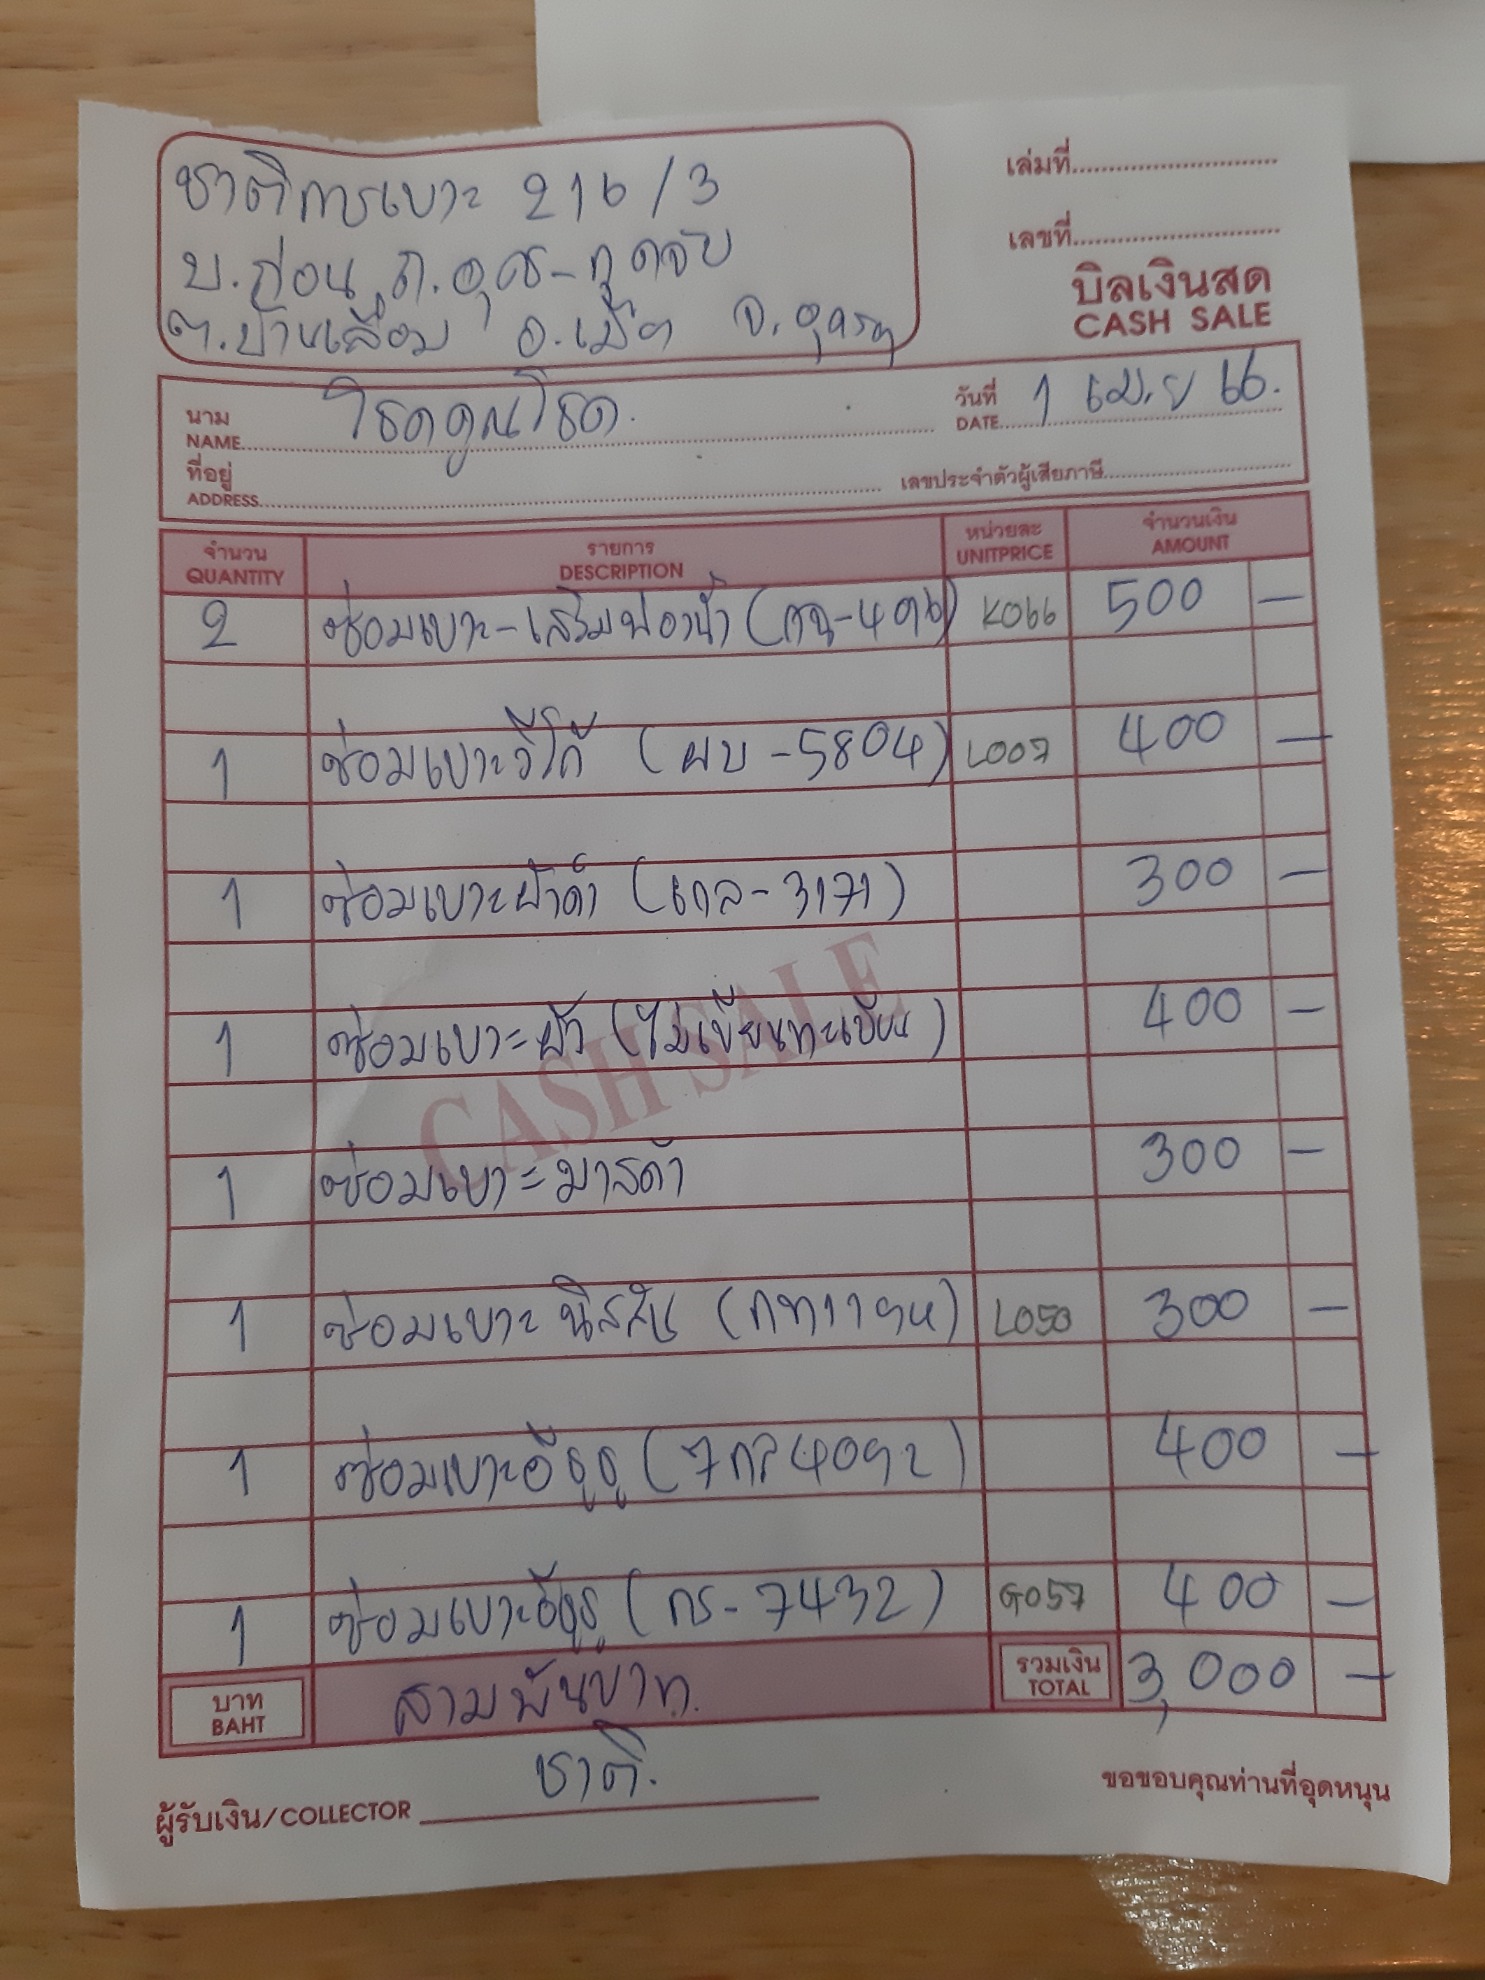 ชาติการเบาะ 216/3
บ.ก่อน ถ.อุดร-กุดจับ
ต.บ้านเลื่อม อ.เมือง จ.อุดรฯ
เล่มที่
เลขที่
บิลเงินสด
CASH SALE
นาม
NAME โชคคูณโชค.
วันที่
DATE 1 เม.ย 66.
ที่อยู่
ADDRESS
เลขประจำตัวผู้เสียภาษี
จำนวน รายการ หน่วยละ จำนวนเงิน
QUANTITY DESCRIPTION UNITPRICE AMOUNT
2 ซ่อมเบาะ-เสริมฟองน้ำ (กฉ-496) K066 500 –
1 ซ่อมเบาะวีโก้ (ผบ-5804) L007 400 –
1 ซ่อมเบาะผ้าดำ (3171) 300 –
1 ซ่อมเบาะ (ไม่เขียนทะเบียน) 400 –
CASH SALE
1 ซ่อมเบาะมาสด้า 300 –
1 ซ่อมเบาะนิสสัน L050 300 –
1 ซ่อมเบาะอีซูซุ 400 –
1 ซ่อมเบาะอีซูซุ (กร-7432) G057 400 –
บาท
BAHT
สามพันบาท.
รวมเงิน
TOTAL
3,000 –
ชาติ.
ผู้รับเงิน/COLLECTOR
ขอขอบคุณท่านที่อุดหนุน